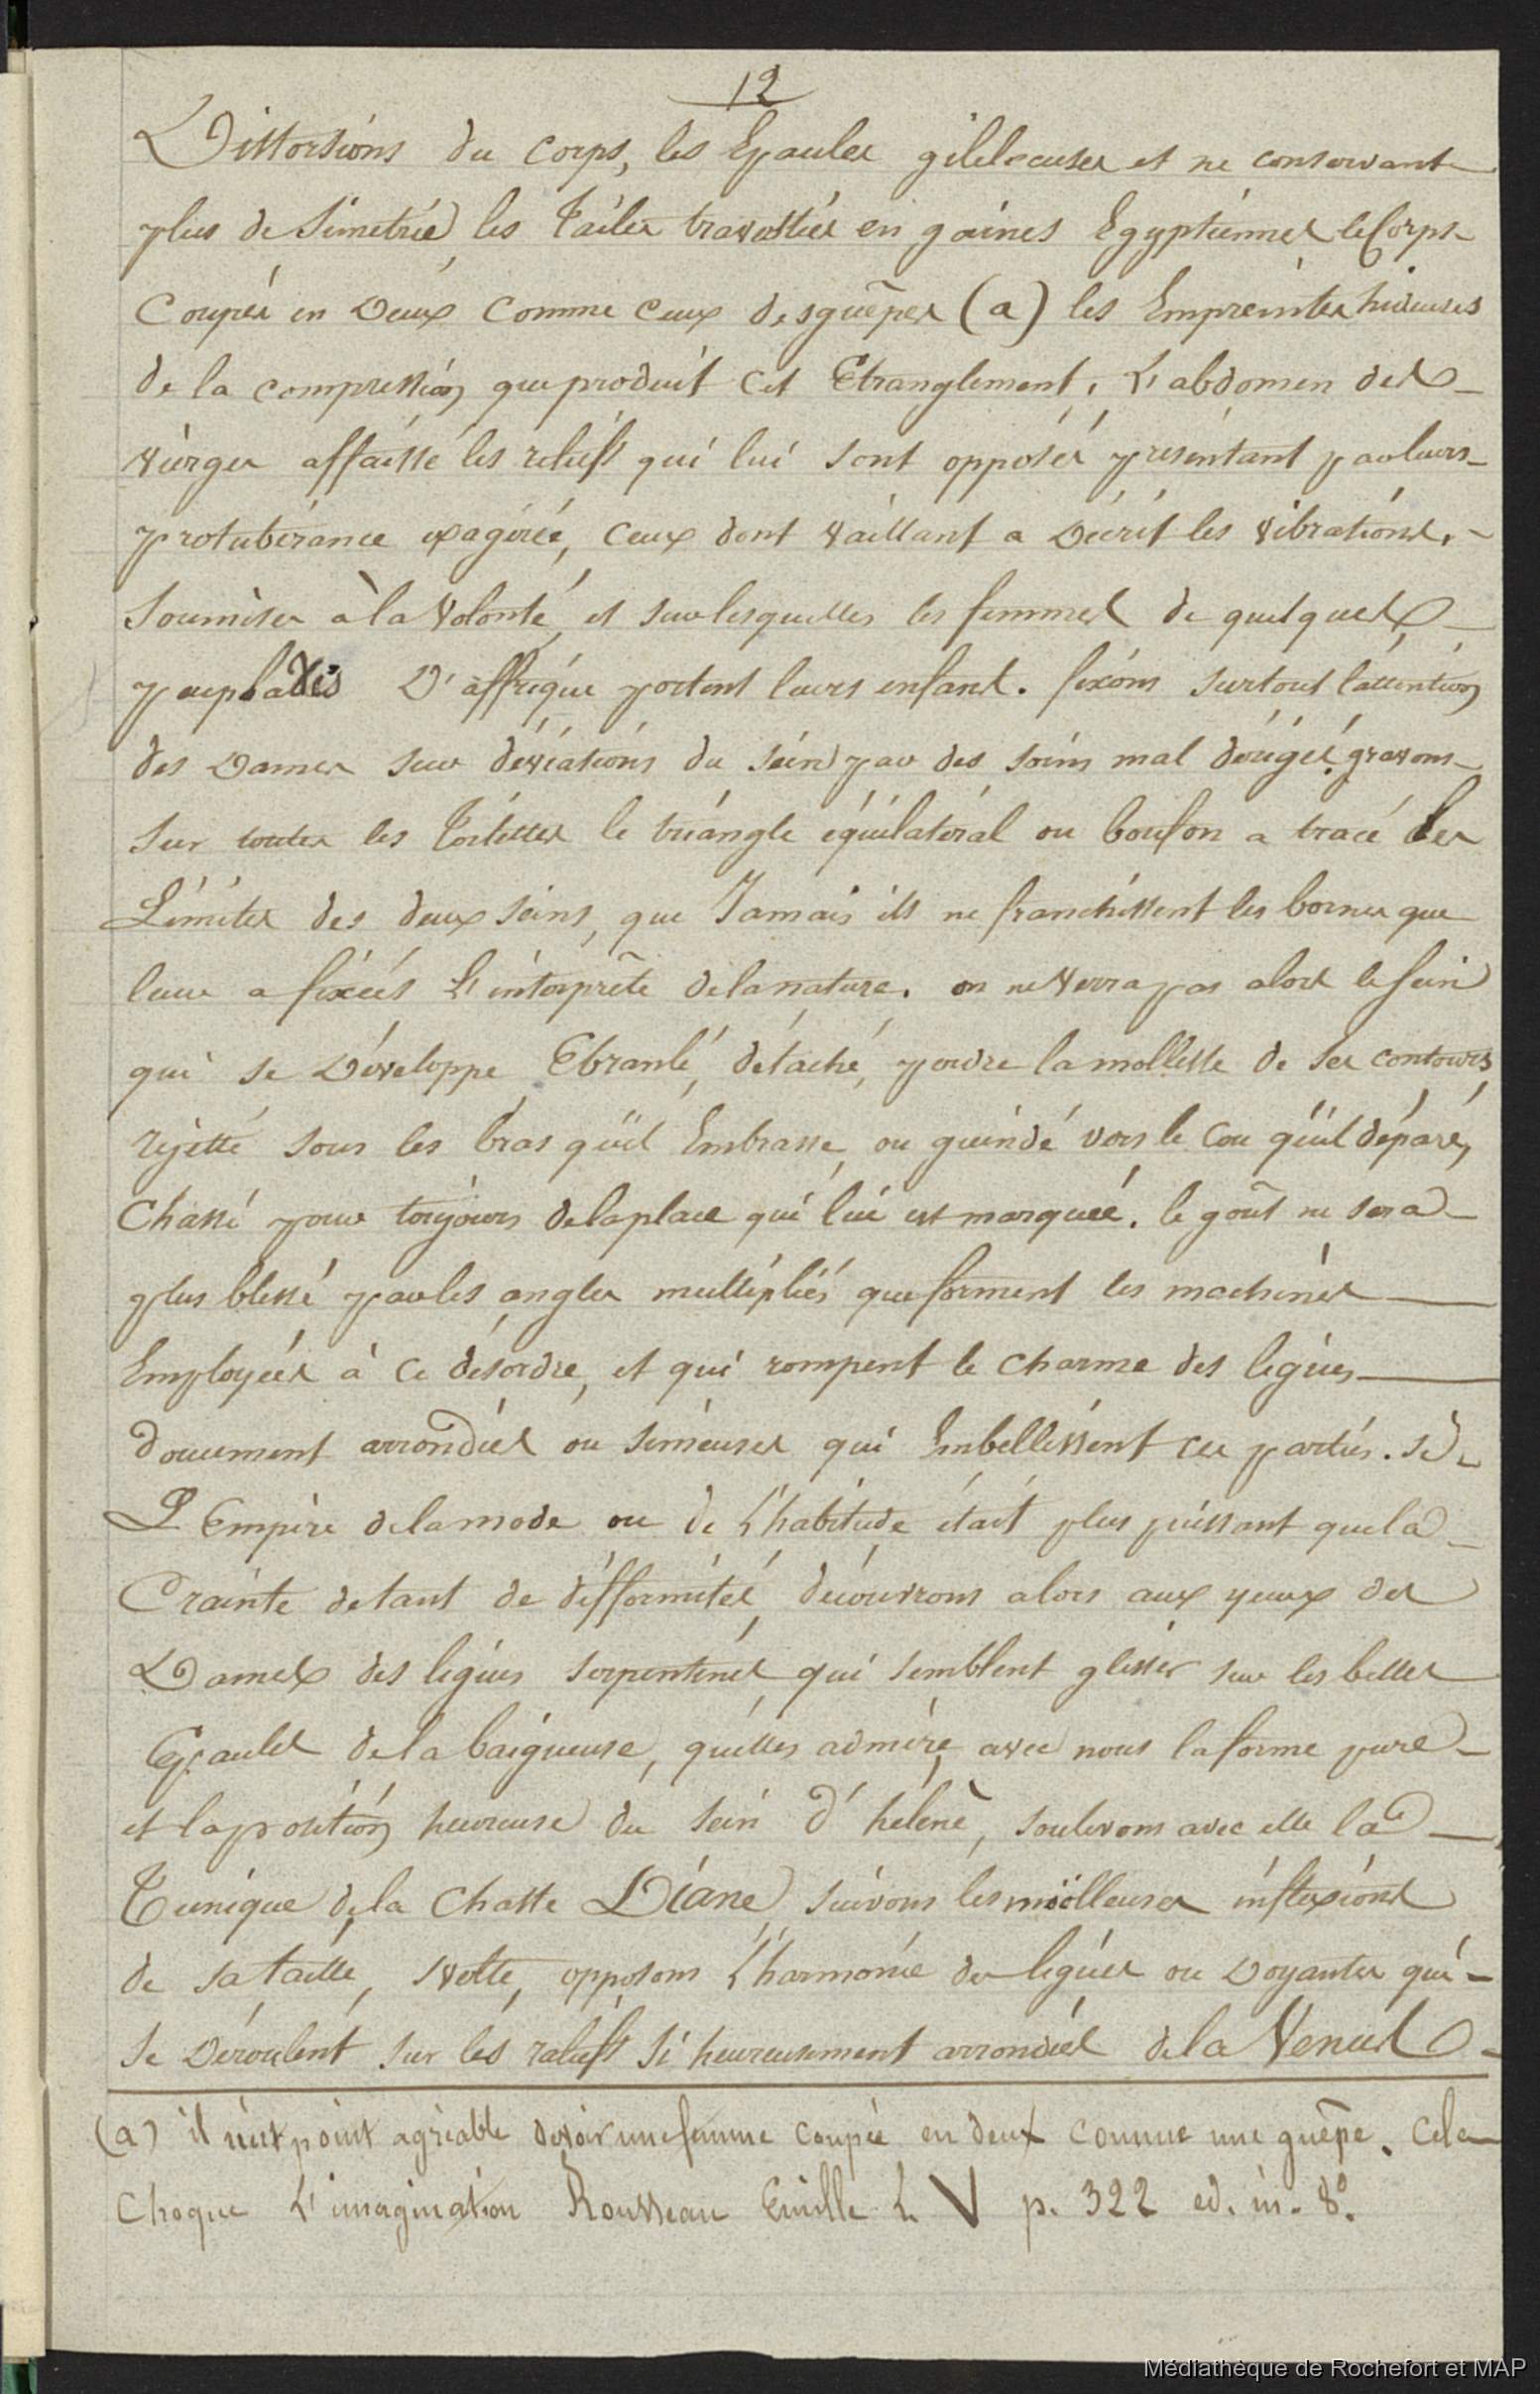 12
Distorsions du corps, les Epaules gibbeuses et ne conservant
plus de Simetrie, les Tailes travesties en gaines Egyptiennes le Corps
Coupés en Deux comme ceux des guêpes (a) les Empreintes hideuses
de la compression que produit cet Etranglement. L'abdomen des
vierges affaissé les reliefs qui lui sont opposés présentant par leurs
protubérance exagérée, ceux dont Vaillant a Décrit les vibrations.
Soumises à la Volonté, et sur lesquelles les femmes de quelques
peuplades D'affrique portent leurs enfans. fixons surtout l'attention
des Dames sur déviations du sein par des soins mal dirigés, gravons
sur toutes les Toilettes le triangle équilatéral ou boufon a tracé les
Limites des deux seins, que Jamais ils ne franchissent les bornes que
leur a fixées L'interprête de la nature. on ne Verra pas alors le sein
qui se Développe Ebranlé, détaché, perdre la mollesse de ses contours,
rejetté sous les bras qu'il Embrasse, ou guindé vers le Cou qu'il dépare,
Chassé pour toujours de la place qui lui est marquée. le goût ne sera
plus blessé par les angles multipliés que forment les machines
Employées à ce désordre, et qui rompent le charme des legies
doucement arrondies ou sineuses qui Embellissent ces parties. si
L'Empire de la mode ou de L'habitude était plus puissant que la
Crainte de tant de difformités, découvrons alors aux yeux des
Dames des legies serpentines qui semblent glisser sur les belles
Epaules de la baigneuse, qu'elles admire, avec nous la forme pure
et la position heureuse du sein d'hélène, soulevons avec elle la
Tunique de la Chaste Diane, suivons les moëlleuses inflexions
de sa taille, svelte, opposons L'harmonie des legies ou Doyantes qui
se Déroulent sur les reliefs si heureusement arrondies de la Venus
(a) il n'est point agréable de voir une femme coupée en deux comme une guêpe. Cela
Choque L'imagination Rousseau Emille L. V p. 322 ed. in-8°.
Médiathèque de Rochefort et MAP